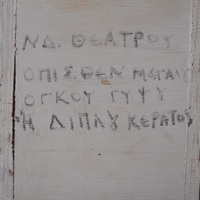 ΝΔ. ΘΕΑΤΡΟΥ
ΟΠΙΣΘΕΝ ΜΕΓΑΛΥ
ΟΓΚΟΥ ΓΥΨΥ
Ή ΔΙΠΛΥ ΚΕΡΑΤΟΣ